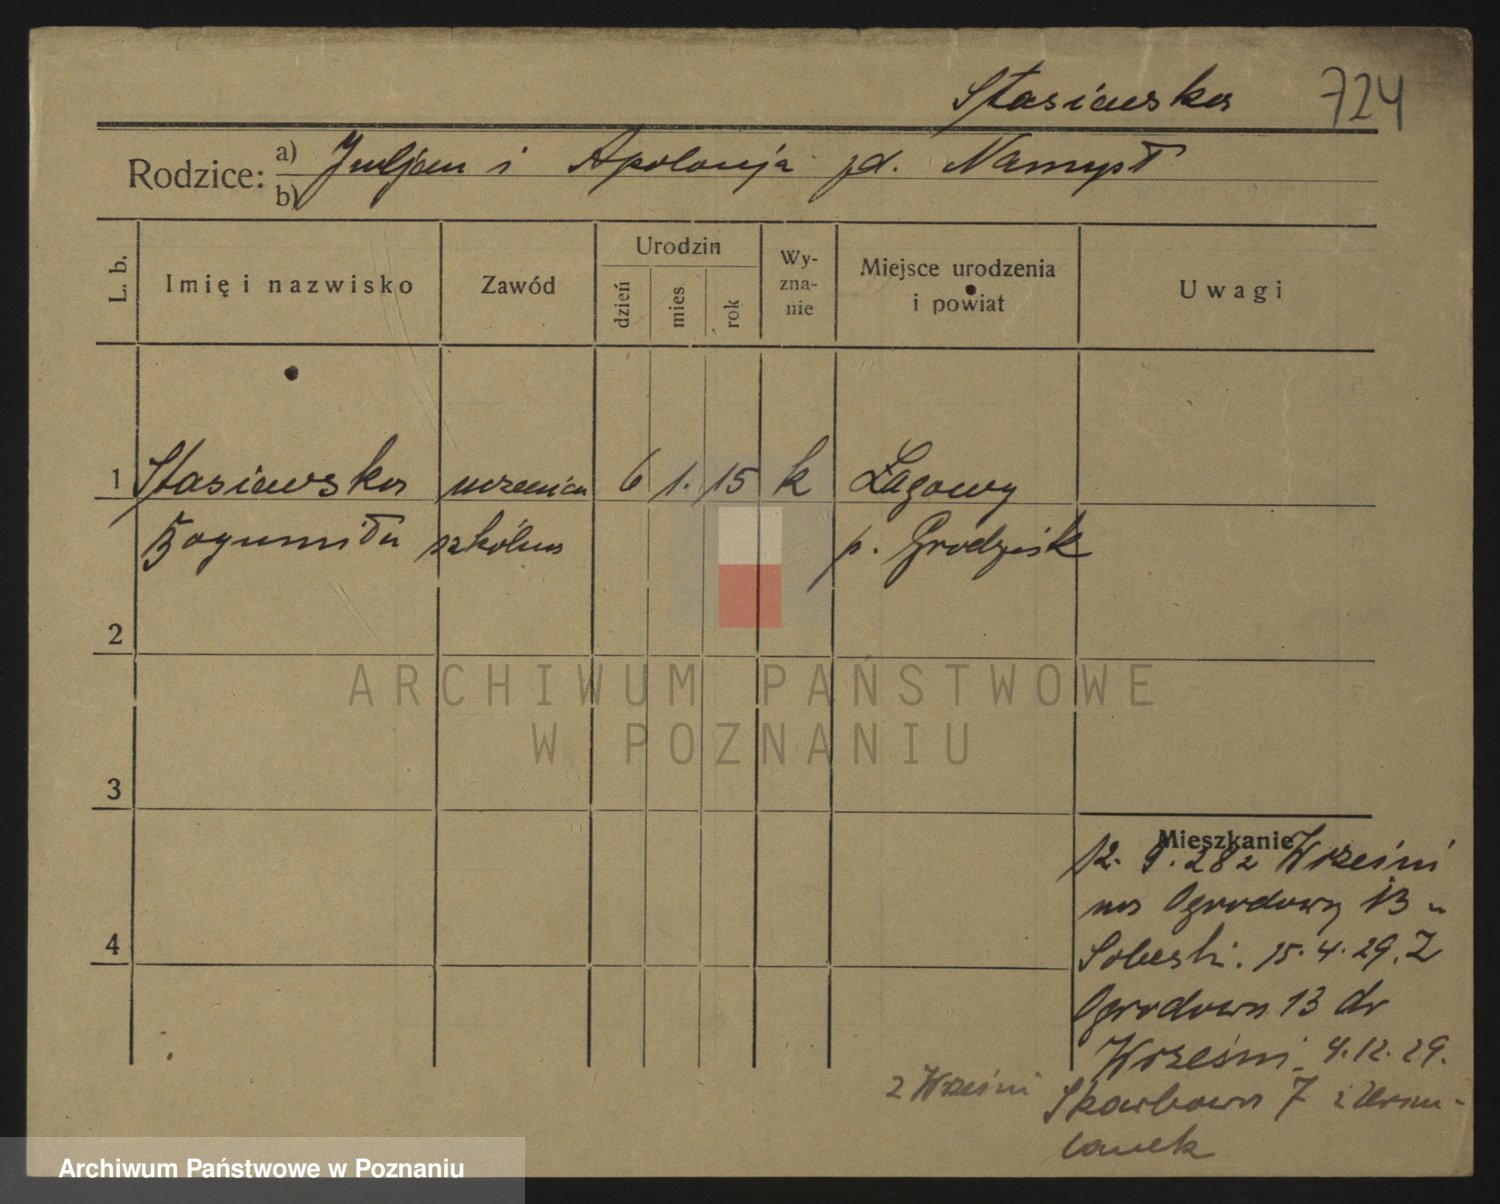 Stasiewska 724
Rodzice: a) Juljan i Apolonja zd. Namysł
b)
L. b. Imię i nazwisko Zawód Urodzin dzień mies rok Wyznanie Miejsce urodzenia i powiat Uwagi
1 Stasiewska uczenica 6 1. 15 k Łagowy
Bogumiła szkólna p. Grodzisk
2
3
4
Mieszkanie
12. 9. 28 z Wrześni
na Ogrodowy 13 u
Sobeski. 15. 4. 29. Z
Ogrodowa 13 do
Wrześni. 4. 12. 29.
z Wrześni Skarbowa 7 Urszulanek
ARCHIWUM PAŃSTWOWE
W POZNANIU
Archiwum Państwowe w Poznaniu